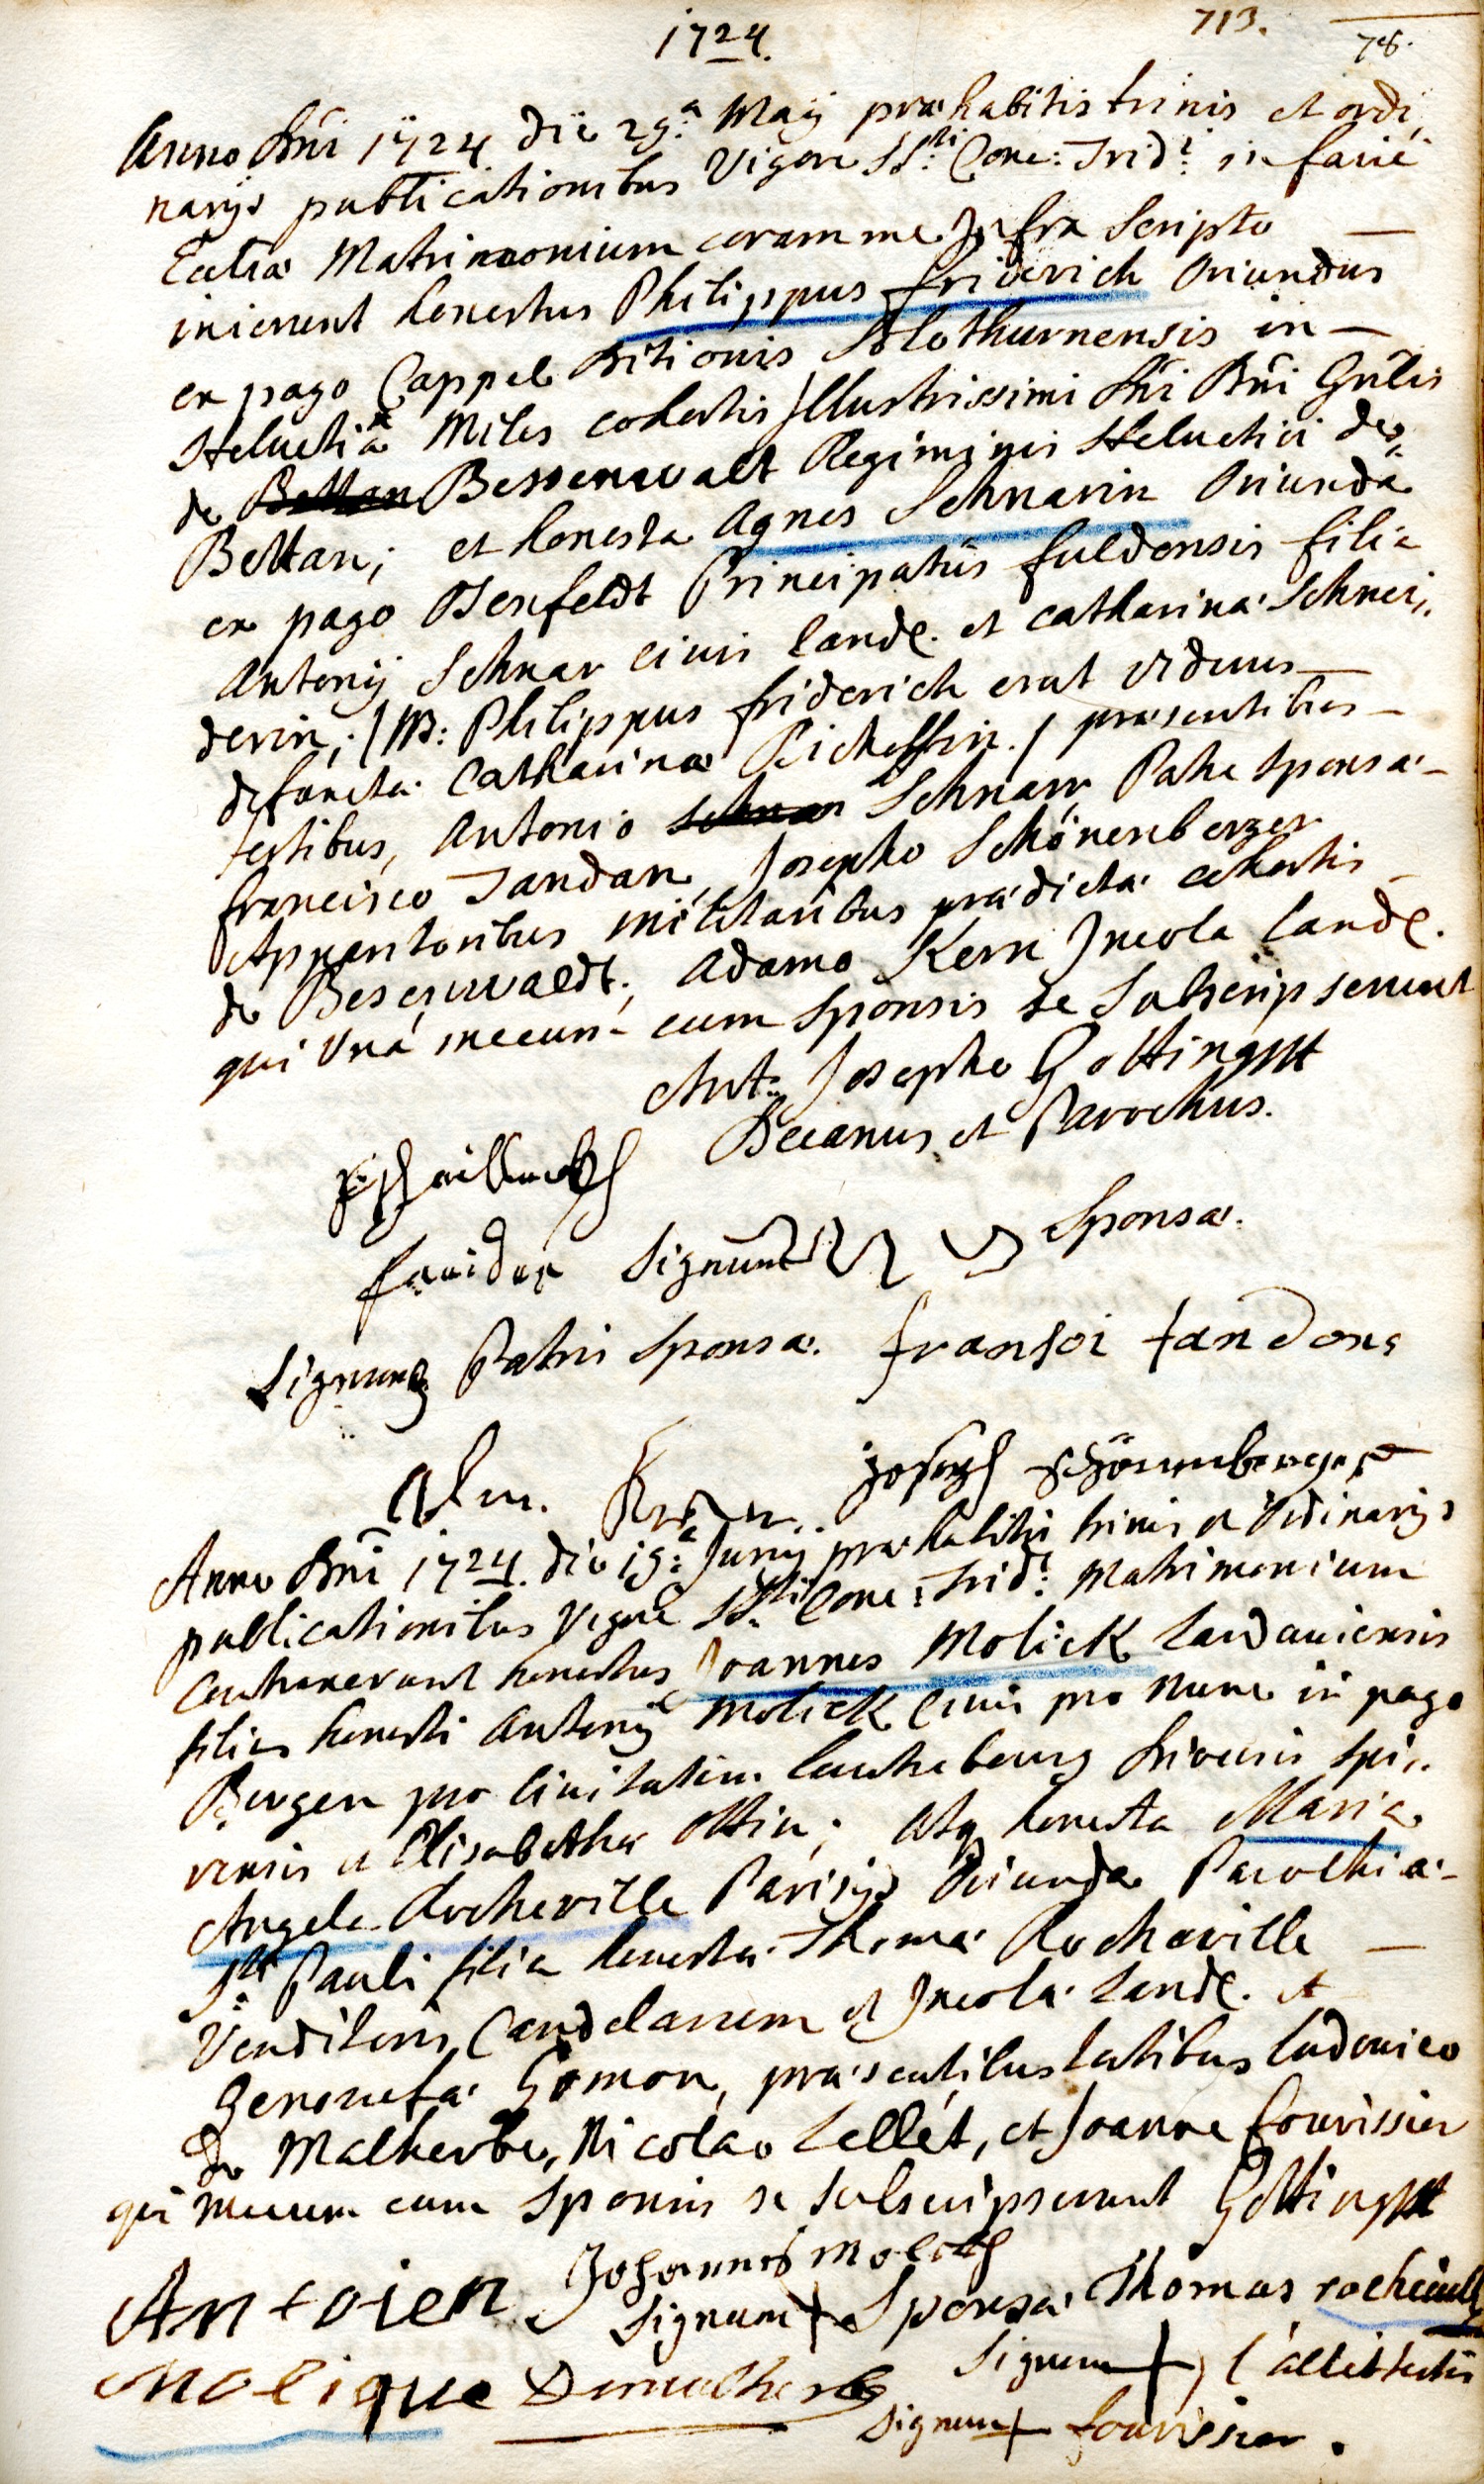 1724.
713.
78.
Anno Dni 1724 die 29.a Maij præhabitis trinis et ordi,
narijs publicationibus Vigore SS:ti Conc: Trid:i in facie
Eccliæ Matrimonium coram me Infra Scripto —
inierunt honestus Philippus friderich Oriundus
ex pago Cappel Ditionis Solothurnensis in —
Helvetia Miles cohortis Illustrissimi Dni Dni Gnlis
de Bettan Bessenwalt Regiminis Helvetici de
Bettan; et honesta Agnes Schnarin Oriunda
ex pago Isenfeldt Principatus fuldensis filia
Antonij Schnar civis Land. et Catharinæ Schnei,,
derin; / NB: Philippus friderich erat viduus —
defunctæ Catharinæ / præsentibus —
testibus, Antonio Schnarr Patre Sponsæ —
francisco Tandan, Josepho Schönenberger
militaribus prædictæ cohortis —
de Besenwaldt; Adamo Kern Incola Land.
qui Una mecum cum Sponsis se Subscripserunt
Ant: Josephe Gotting
Decanus et Parochus.
Signum Sponsæ.
Signum Patris Sponsæ. fransoi tandong
Joseph Schönenberger
Anno Dni 1724. die 19.a Junij præhabitis trinis et Ordinarijs
publicationibus Vigore SS:ti Conc: Trid:i Matrimonium
Contraxerunt honestus Joannes Molick Landaviensis
filius honesti Antonij Molick civis pro nunc in pago
Bergen pro Civitatem Lauthebourg Diocesis Spi,,
rensis et Elisabethæ Ottin; atq honesta Maria
Angela Rocheville Parisijs Oriunda Parochiæ —
S:ti Pauli filia honesti Thomæ Rocheville —
Venditoris Candelarum et Incolæ Land. et
Genovefæ Gomon, præsentibus testibus Ludovico
de Malherbe, Nicolao Lellét, et Joanne fourissier
qui mecum cum Sponsis se subscripserunt Gotting
Johannes Molich
Antoien
Signum + Sponsæ Thomas rocheville
Molique Demalherbe
Signum +
Signum + fourissier.